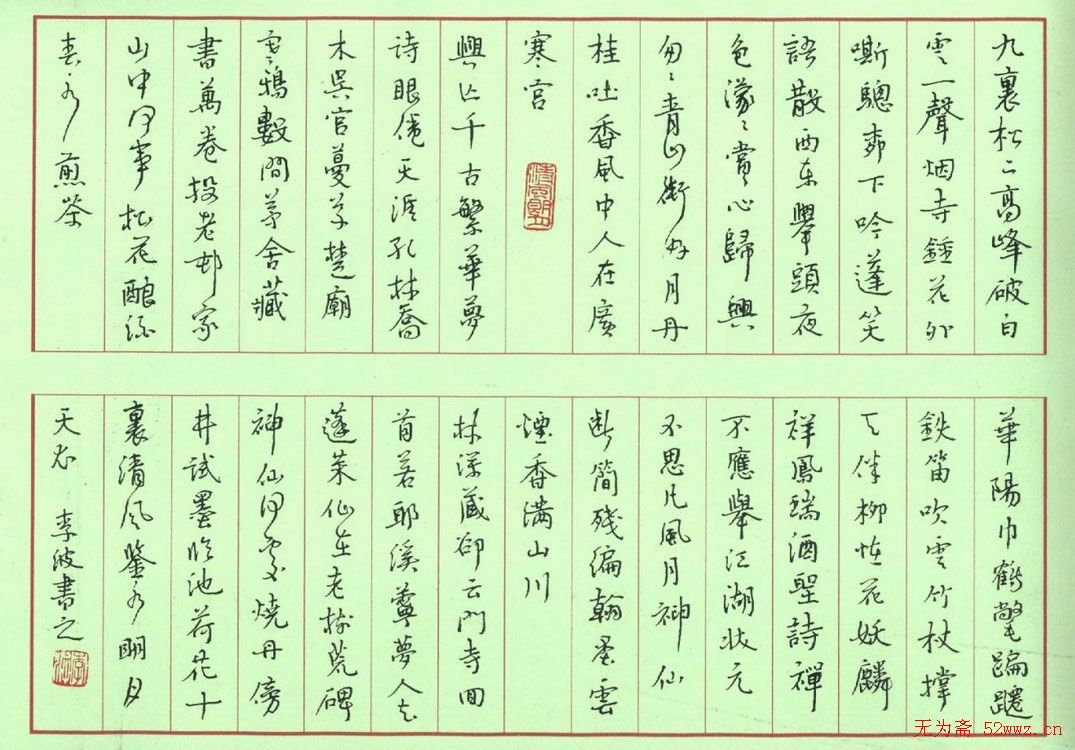 九裏松二高峰破白
雲一聲烟寺鐘花外
嘶驄柳下吟蓬笑
語散西东舉頭夜
色濛々賞心歸興
匆々青山銜好月丹
桂吐香風中人在廣
寒宫
興亡千古繁華夢
詩眼倦天涯孔林喬
木吳官蔓草楚廟
寒鴉數間茅舍藏
書萬卷投老邨家
山中何事松花酿酒
春水煎茶
華陽巾鶴氅蹁躚
鉄笛吹雲竹杖撑
天伴柳怪花妖麟
祥鳳瑞酒聖詩禪
不應舉江湖狀元
不思凡風月神仙
断簡殘編翰墨雲
煙香满山川
林深藏却云門寺回
首若耶溪苧夢人去
蓬萊仙在老樹荒碑
神仙何處燒丹傍
井試墨临池荷花十
裏清風鑒水明月
天衣 李波書之
无为斋 52wwz.cn